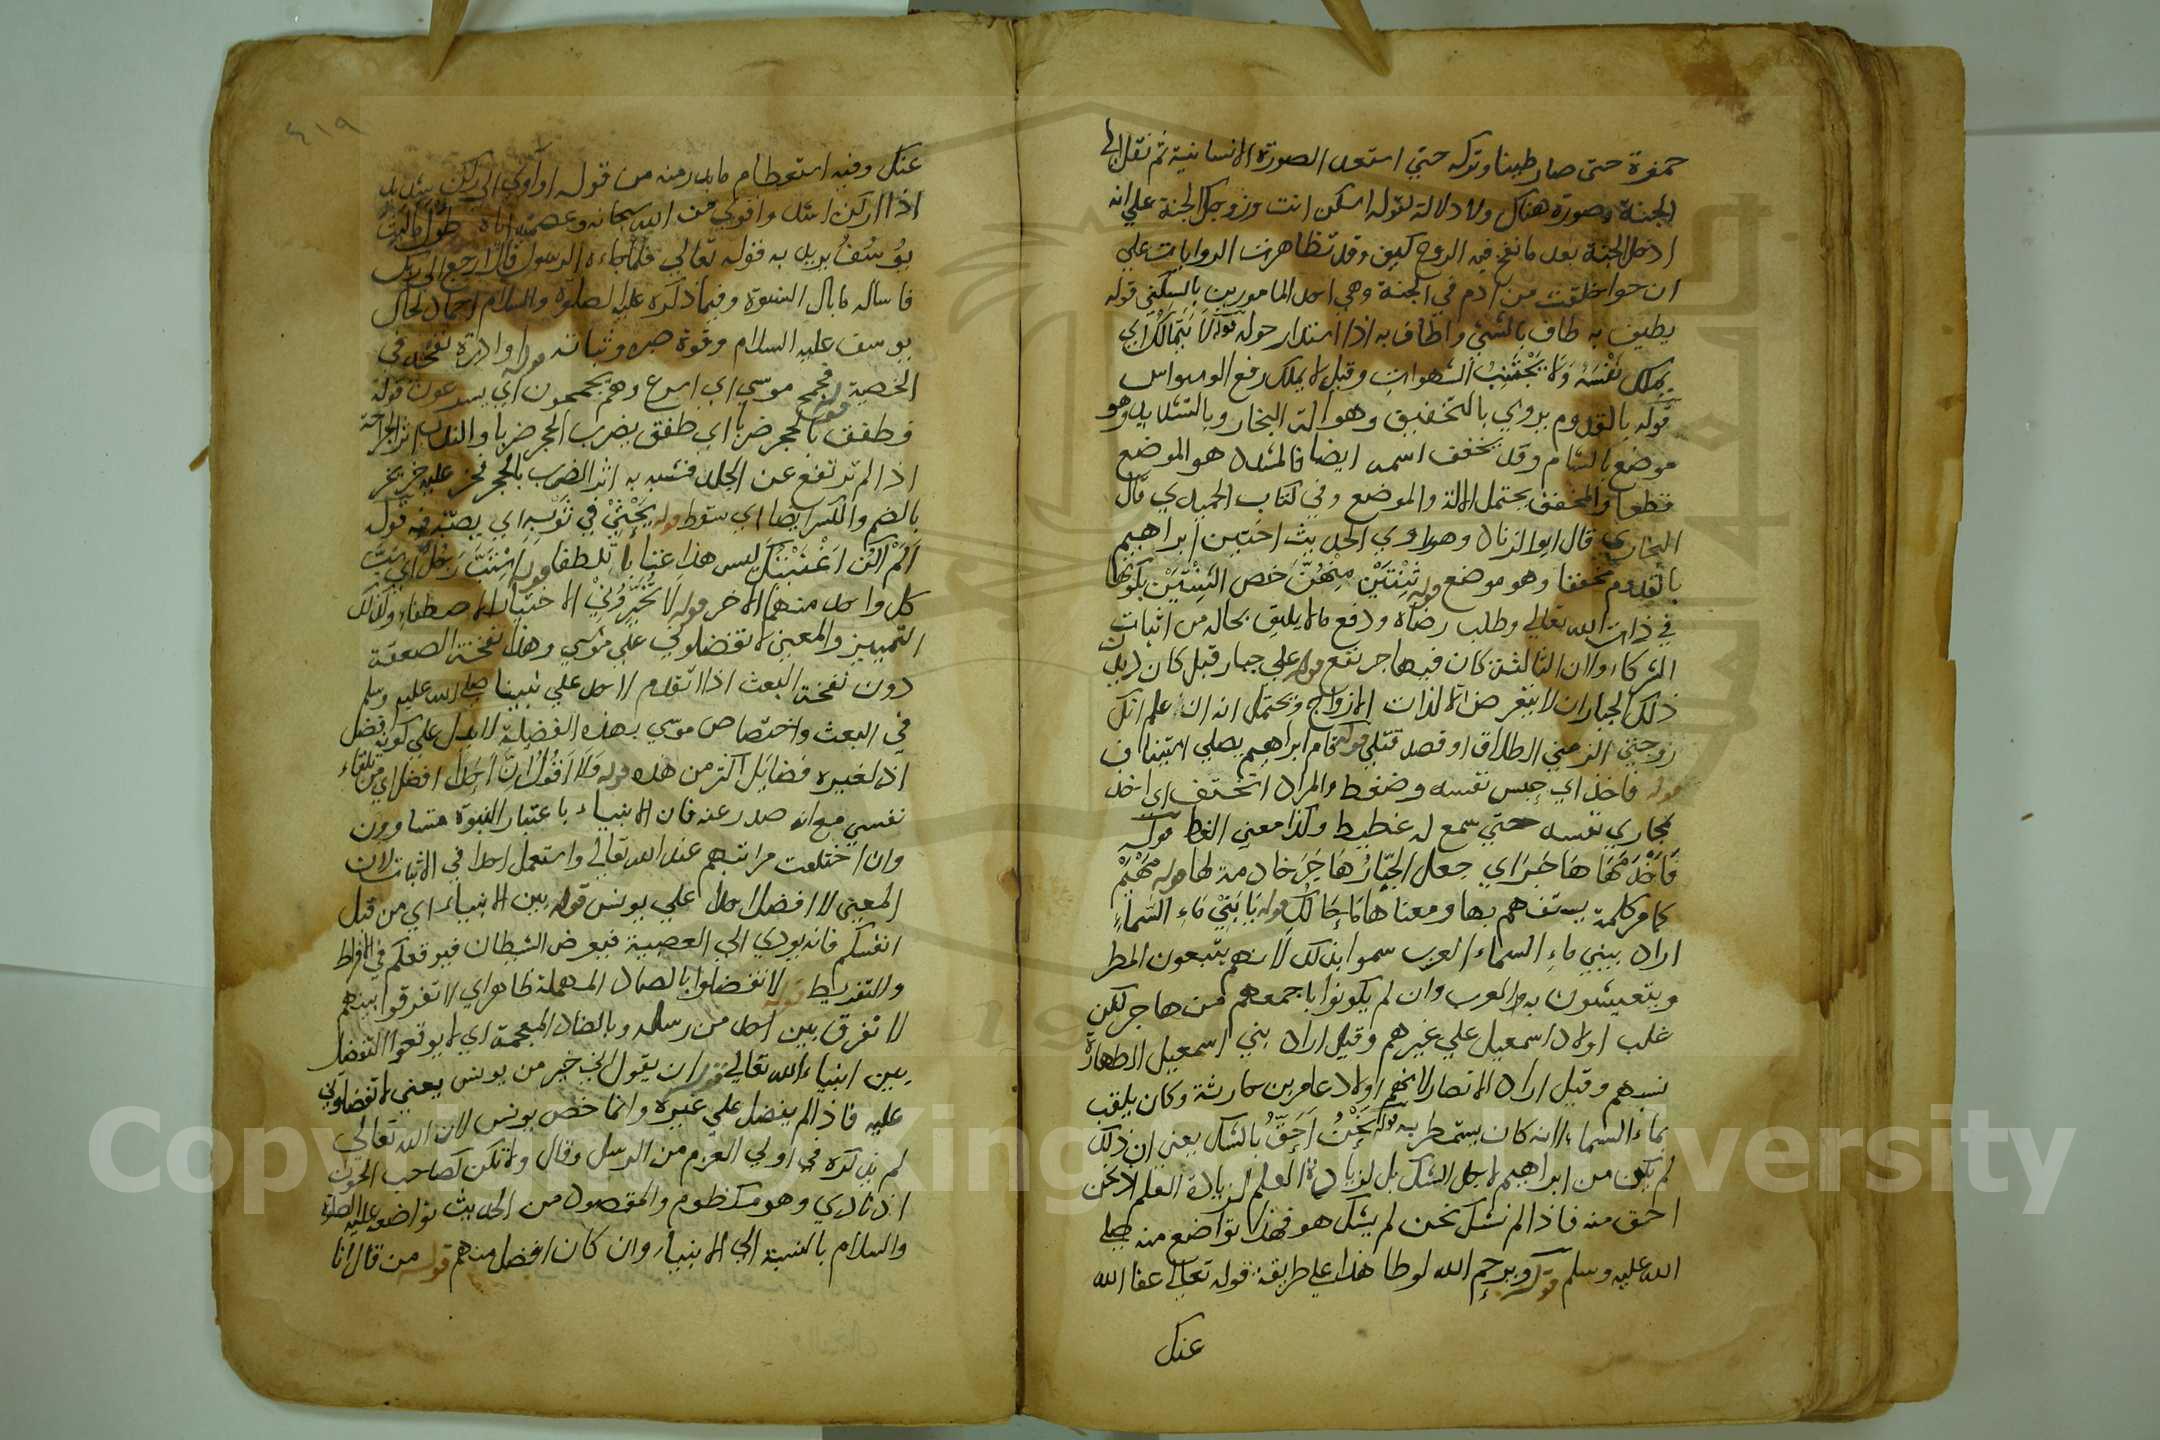 حمرة حتى صار طينا وتركه حتي استعد الصورة الانسانية ثم نقل الي
الجنة وصوره هناك ولا دلالة لقوله اسكن انت وزوجك الجنة علي انه
ادخل الجنة بعد ما نفخ فيه الروح كيف وقد تظاهرت الروايات علي
ان حوا خلقت من آدم في الجنة وهي احد المامورين بالسكنى قوله
يطيف به طاف بالشي واطاف به اذا استدار حوله قوله لا يتمالك اي
يملك نفسه ولا يجتنب الشهوات وقيل لا يملك رفع الوسواس
قوله بالقدوم يروي بالتخفيف وهو الت النجار وبالتشديد وهو
موضع بالشام وقد يخفف اسمه ايضا فالمشدد هو الموضع
قطعا والمخفف يحتمل الالة والموضع وفي كتاب الحميدي قال
البخاري قال ابو الزناد وهو راوي الحديث اختتن ابراهيم
بالقدوم مخففا وهو موضع قوله ثنتين منهن خص الثنتين بكونها
في ذات الله تعالي وطلب رضاه ودفع ما لا يليق بحاله من اثبات
الشركاء وان الثالثة كان فيها جر نفع قوله علي جبار قيل كان دين
ذلك الجبار ان لا يتعرض الا لذات الازواج ويحتمل انه ان علم انك
زوجتي الزمني الطلاق او قصد قتلي قوله قام ابراهيم يصلي استيناف
قوله فاخذ اي حبس نفسه وضغط والمراد اختنف اي اخذ
مجاري نفسه حتي سمع له غطيط وكذا معني الغط قوله
فاخدمها هاجر اي جعل الجبار هاجر خادمة لها قوله مهيم
كامر كلمة يستفهم بها ومعناها ما حالك قوله يا بني ماء السماء
اراد ببني ماء السماء العرب سموا بذلك لانهم يتبعون المطر
ويتعيشون به والعرب وان لم يكونوا باجمعهم من هاجر لكن
غلب اولاد اسمعيل علي غيرهم وقيل اراد بني اسمعيل لطهارة
نسبهم وقيل اراد الانصار لانهم اولاد عامر بن حارثة وكان يلقب
بماء السماء لانه كان يستمطر به قوله نحن احق بالشك يعني ان ذلك
لم يكن من ابراهيم لاجل الشك بل لزيادة العلم لزيادة العلم لانحن
احق منه فاذا لم نشك نحن لم يشك هو فهذا تواضع منه صلى
الله عليه وسلم قوله ويرحم الله لوطا هذا علي طريقة قوله تعالى عفا الله
عنك
٤١٩
عنك وفيه استعظام ما بدر منه من قوله او آوي الي ركن شديد
اذ الركن اشد واقوي من الله سبحانه وعصمته اياه طول ما لبث
يوسف يريد به قوله تعالي فلما جاءه الرسول قال ارجع الي ربك
فاساله ما بال النسوة وفيما ذكره عليه الصلوة والسلام احماد لحال
يوسف عليه السلام وقوة صبره وثباته قوله او ادرة نفخة في
الخصية قوله فجمح موسي اي اسرع وهم يجمحون اي يسرعون قوله
فطفق بالحجر ضربا اي طفق يضرب الحجر ضربا والندب اثر الجراحة
اذا لم ترتفع عن الجلد فشبه به اثر الضرب بالحجر فخر عليه خر يخر
بالضم والكسر ايضا اي سقط قوله يحثي في ثوبه اي يصبه فيه قوله
الم اكن اغنيتك ليس هذا عتابا بل تلطفا قوله استب رجل اي سب
كل واحد منهما الاخر قوله لا تخيروني الاختيار الاصطفا وكذلك
التمييز والمعني لا تفضلوني علي موسي وهذا نفخة الصعقة
دون نفخة البعث اذ لا تقدم لاحد علي نبينا صلى الله عليه وسلم
في البعث واختصاص موسي بهذه الفضيلة لا يدل علي كونه افضل
اذ لغيره فضايل اكثر من هذه قوله ولا اقول ان احدا افضل اي من تلقاء
نفسي مع انه صدر عنه فان الانبياء باعتبار النبوة متساوون
وان اختلفت مراتبهم عند الله تعالي واستعمل احدا في الاثبات لان
المعني لا افضل احدا علي يونس قوله بين الانبياء اي من قبل
انفسكم فانه يودي الي العصبية فيعرض الشيطان فيوقعكم في الافراط
والتفريط قوله لا تفضلوا بالصاد المهملة ظاهر اي لا تفرقوا بينهم
لا نفرق بين احد من رسله وبالضاد المعجمة اي لا يوقعوا التفضل
بين انبياء الله تعالي قوله ان يقول اني خير من يونس يعني لا تفضلوني
عليه فاذ الم يفضل علي غيره وانما خص يونس لان الله تعالي
لم يذكره في اولي العزم من الرسل وقال ولا تكن كصاحب الحوت
اذ نادي وهو مكظوم والمقصود من الحديث تواضعه عليه الصلوة
والسلام بالنسبة الي الانبياء وان كان افضل منهم قوله من قال انا
Copyright © King Saud University